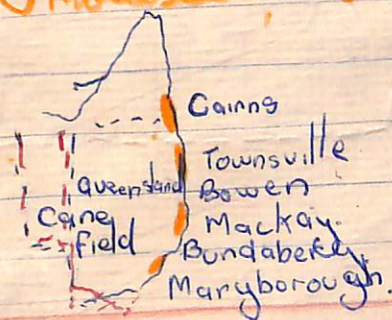 Cairns
Townsville
Queensland
Bowen
Cane
Mackay.
field
Bundaberg.
Maryborough.